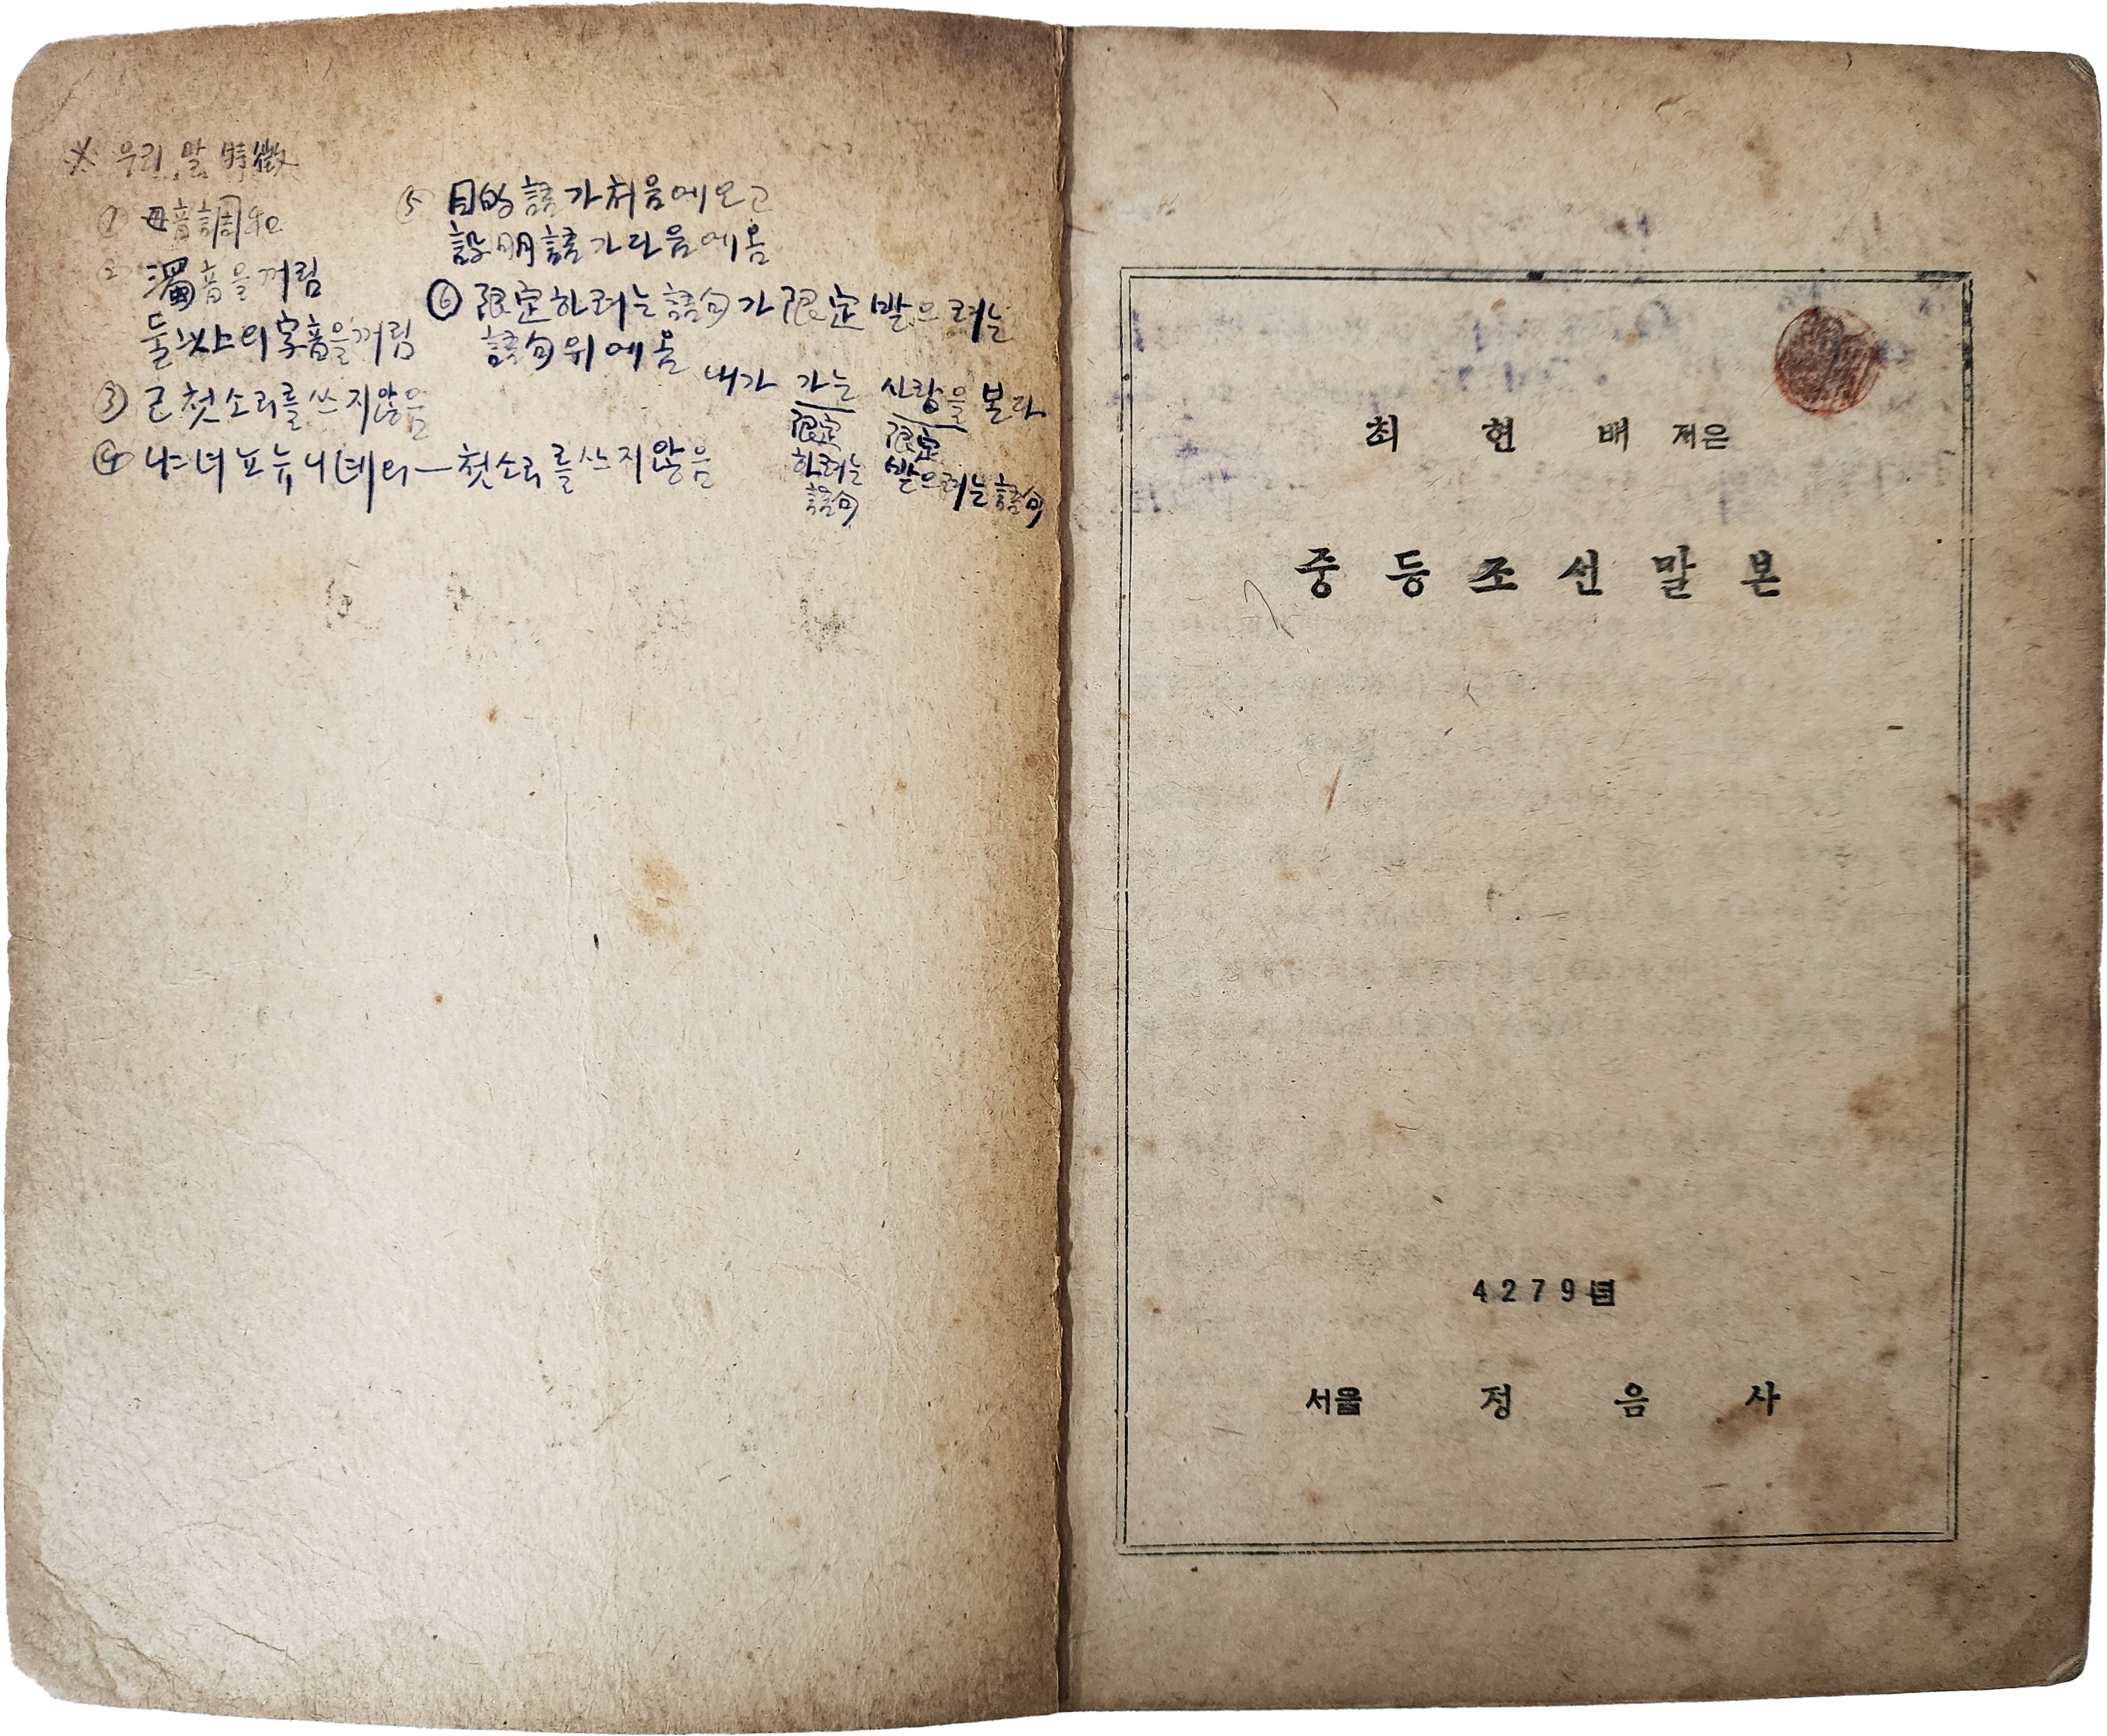 ※ 우리말 特徵
① 母音調和
② 濁音을 꺼림
둘 以上의 字音을 꺼림
③ ㄹ 첫소리를 쓰지 않음
④ 냐 녀 뇨 뉴 니 녜 의 첫소리를 쓰지 않음
⑤ 目的語가 처음에 오고
說明語가 다음에 옴
⑥ 限定하려는 語句가 限定 받으려는
語句 위에 옴
내가 가는 사람을 본다
限定 限定
하려는 받으려는 語句
語句
최 현 배 지은
중등조선말본
4279년
서울 정 음 사